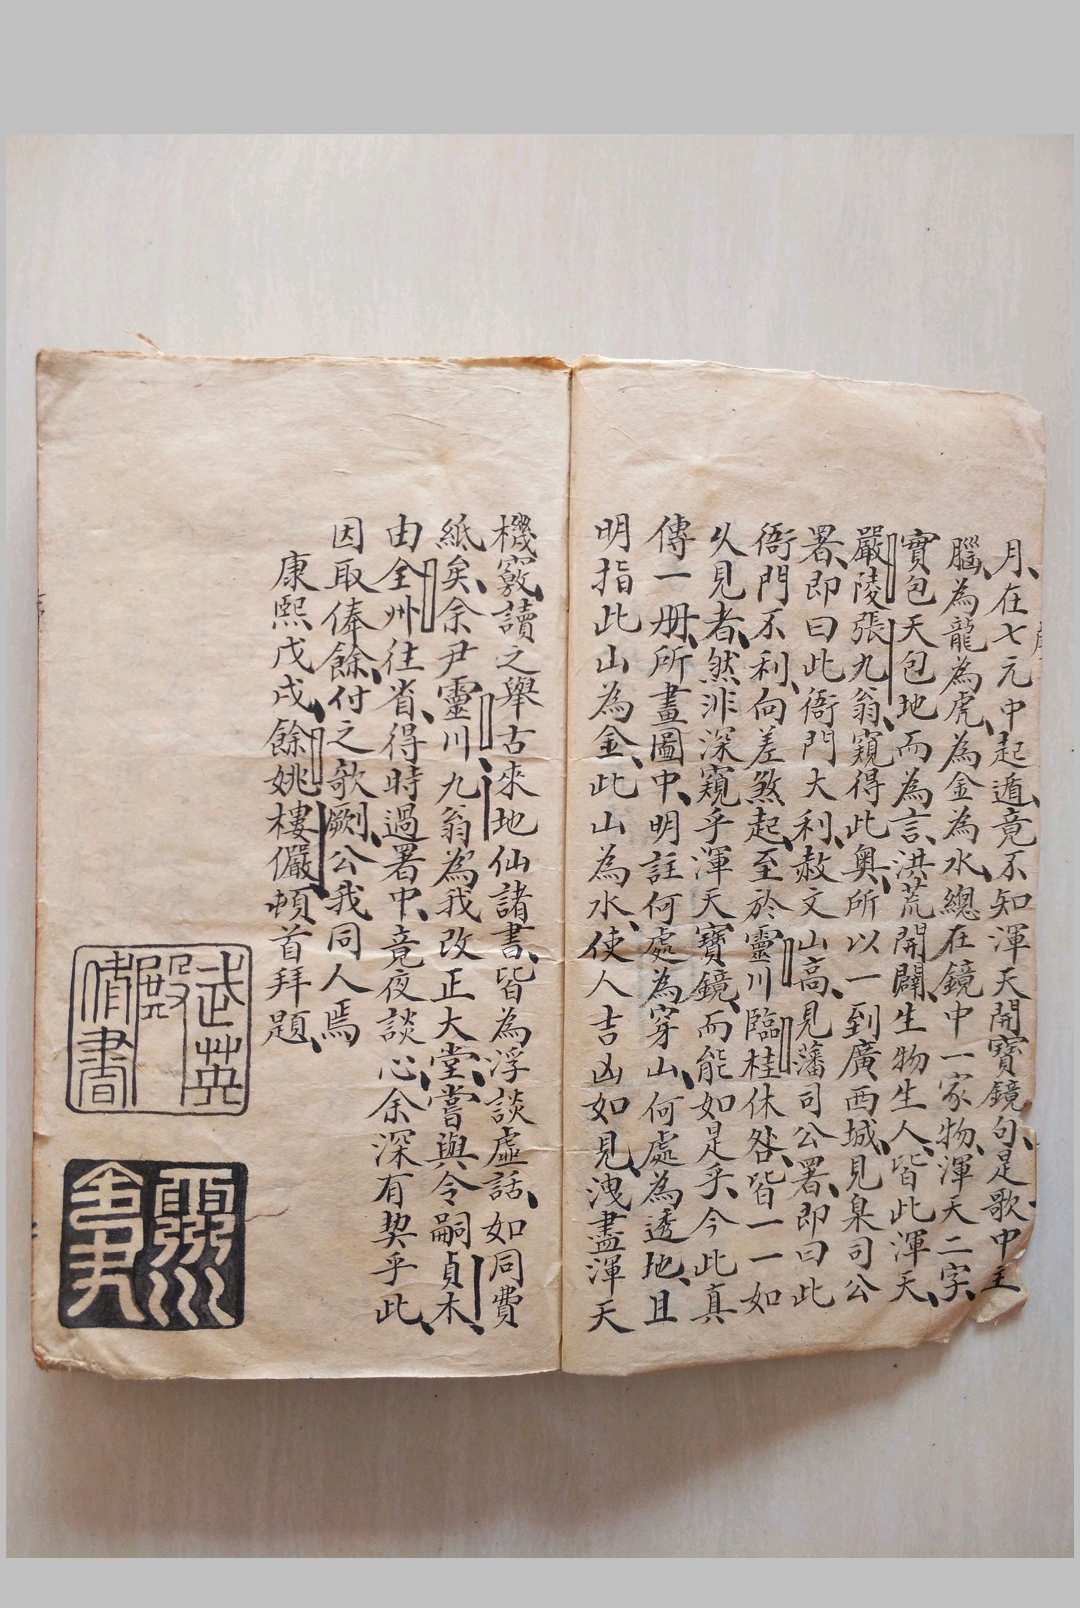 月在七元中起遁竟不知渾天開寶鏡句是歌中主
腦為龍為虎為金為水總在鏡中一家物渾天二字
實包天包地而為言洪荒開闢生物生人皆此渾天
嚴陵張九翁窺得此奧所以一到廣西城見臬司公
署即曰此衙門大利赦文山高見藩司公署即曰此
衙門不利向差煞起至於靈川臨桂休咎皆一一如
乆見者然非深窺乎渾天寶鏡而能如是乎今此真
傳一册所畫圖中明註何處為穿山何處為透地且
明指此山為金此山為水使人吉凶如見洩盡渾天
機竅讀之舉古來地仙諸書皆為浮談虛話如同費
紙矣余尹靈川九翁為我改正大堂嘗與令嗣貞木
由全州往省得時過署中竟夜談心余深有契乎此
因取俸餘付之欹劂公我同人焉
康熙戊戌餘姚樓儼頓首拜題
武英
殿
脩書
靈川
令尹